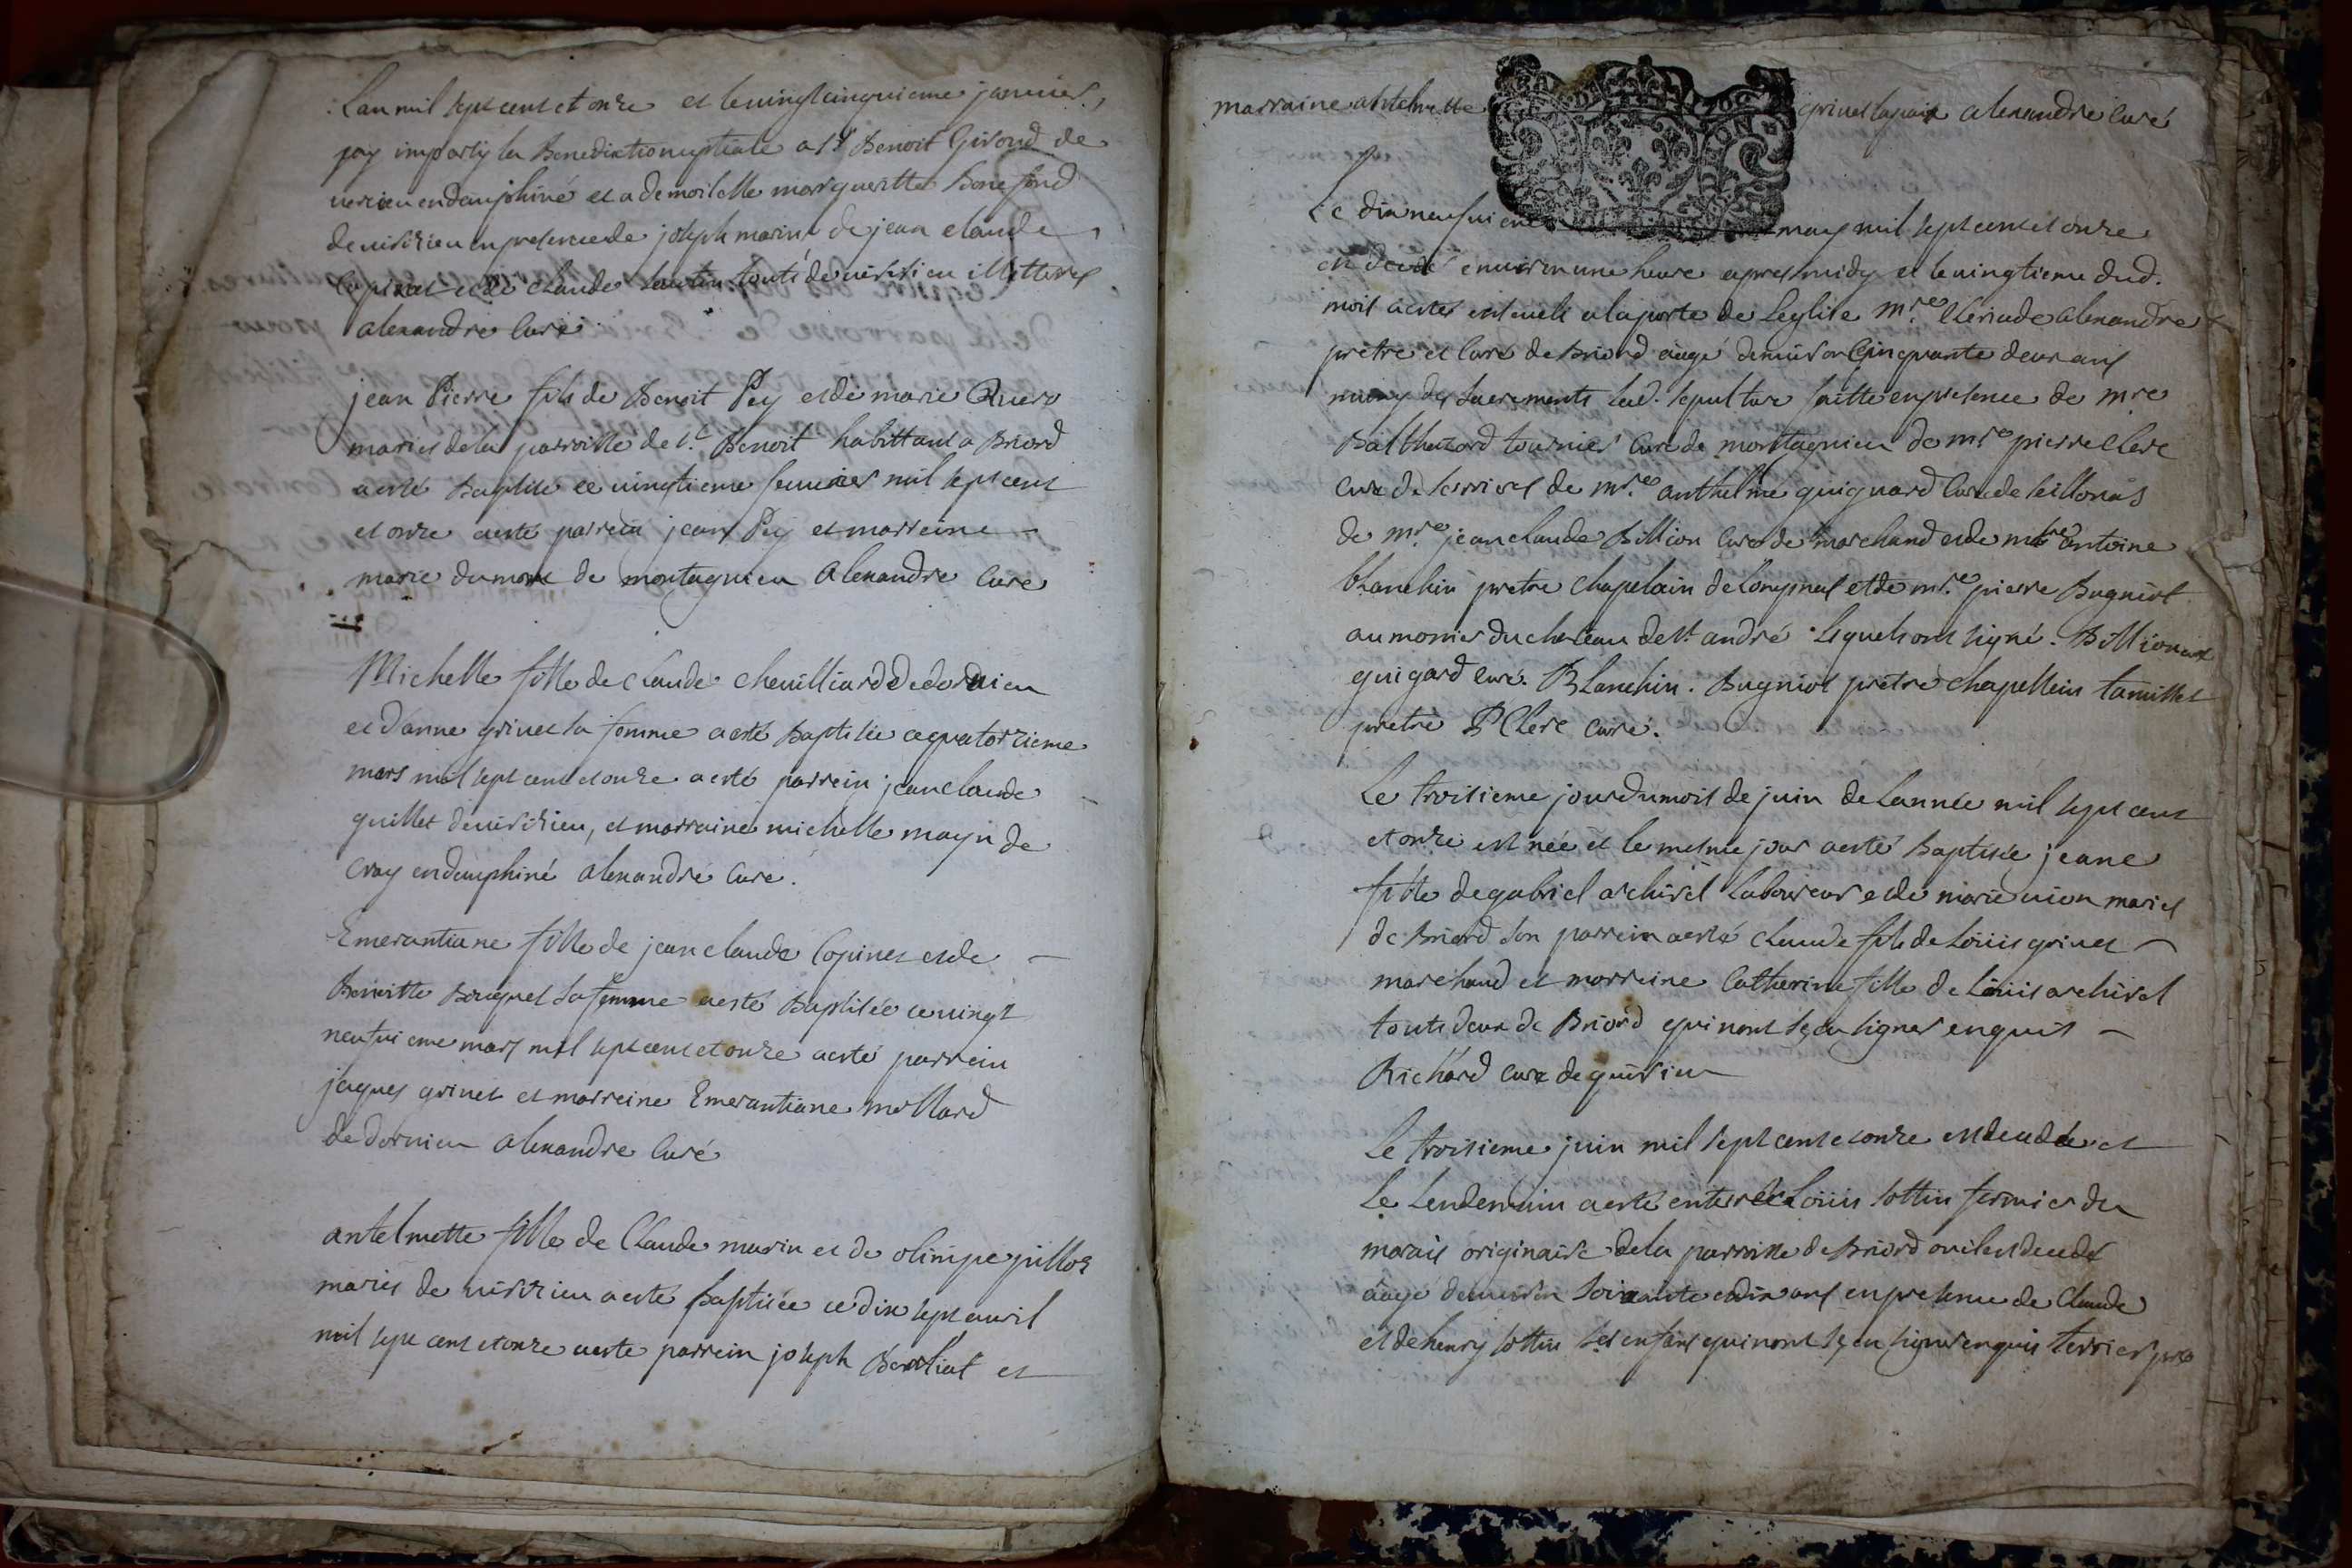 Lan mil sept cent et onze et le vingt cinquieme janvier,
jay imparty la Benediction nuptiale a Sr Benoit Giroud de
verieu en dauphiné et a demoiselle margueritte Bonefond
de visirieu en presence de joseph marin de jean claude
Copinet et de Claude touts de visirieu illitterés
alexandre Curé
jean Pierre fils de Benoit Pey et de marie
mariés de la parroisse de St. Benoit habittans a Briord
a esté Baptisé ce vingtieme feuvrier mil sept cent
et onze a esté parrein jean Pey et marreine
marie dumont de montagnieu Alexandre Curé
Michelle fille de Claude chevilliard de dornieu
et danne grinet sa femme a esté Baptisée ce quatorzieme
mars mil sept cent et onze a esté parrein jean claude
guillet de visirieu, et marraine michelle mayn de
Cray en dauphiné alexandre Curé.
Emerantiane fille de jean claude Copinet et de
Benoitte Bouquet sa femme a esté Baptisée ce vingt
neufvieme mars mil sept cent et onze a esté parrein
jaques grinet et marreine Emerantiane mollard
de dornieu alexandre Curé
antelmette fille de Claude marin et de olimpe pilloz
mariés de visirieu a esté Baptisée ce dix sept avril
mil sept cent et onze a esté parrein joseph Berliat et
marraine antelmette grinet alexandre Curé
Le dix neufvieme may mil sept cent et onze
est decedé environ une heure apres midy et le vingtieme dud.
mois a esté enseveli a la porte de Leglise mre. Cleriade alexandre
pretre et Curé de Briord aagé denviron Cinquante deux ans
muny des sacrements lad. sepulture faitte en presence de mre
Balthezard tournier Curé de montagnieu de mre pierre Clerc
Curé de de mre. anthelme guiguard Curé de seillonas
de mre. jean claude Billion Curé de marchand et de mre antoine
blanchin pretre Chapelain de et de mre. pierre Bugniot
aumonier du chateau de st andré lesquels ont signé. Billion curé
guigard curé. Blanchin. Bugniot pretre chapellein
pretre P Clerc curé.
Le troisieme jour du mois de juin de Lannée mil sept cent
et onze est née et le mesme jour a esté Baptisée jeane
fille de gabriel archirel Laboureur et de marie mariés
de Briord son parrein a esté claude fils de Loüis grinet
marchand et marreine Catherine fille de Loüis archirel
touts deux de Briord qui nont sçeu signer enquis
Richard curé de quirieu
Le troisieme juin mil sept cent et onze est decedé et
Le Lendemain a esté enterré Loüis sottin fermier du
marais originaire de la parroisse de Briord ou il est decedé
aagé denviron soixante et dix ans en presence de Claude
et de henry sottin ses enfans qui nont sçeu signer enquis